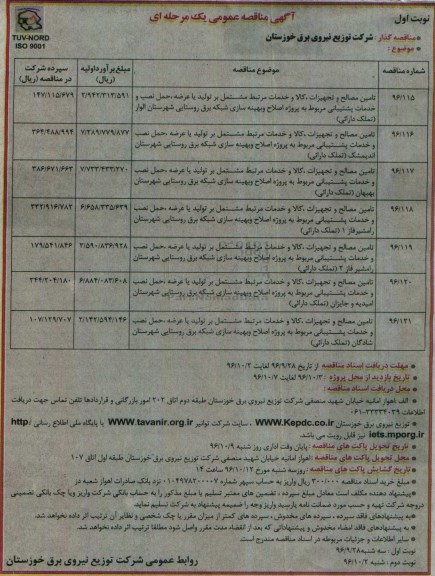 نوبت اول:
آگهی مناقصه عمومی یک مرحله ای
TUV-NORD
ISO 9001
مناقصه گذار: شرکت توزیع نیروی برق خوزستان
موضوع:
شماره مناقصه
موضوع مناقصه
مبلغ برآورد اولیه (ریال)
سپرده شرکت در مناقصه (ریال)
۹۶/۱۱۵
تامین مصالح و تجهیزات ،کالا و خدمات مرتبط مشتمل بر تولید یا عرضه ،حمل نصب و
خدمات پشتیبانی مربوط به پروژه اصلاح وبهینه سازی شبکه برق روستایی شهرستان الوار
(تملک دارائی)
۲/۹۴۲/۳۱۳/۵۹۱
۱۴۷/۱۱۵/۶۷۹
۹۶/۱۱۶
تامین مصالح و تجهیزات ،کالا و خدمات مرتبط مشتمل بر تولید یا عرضه ،حمل نصب
و خدمات پشتیبانی مربوط به پروژه اصلاح وبهینه سازی شبکه برق روستایی شهرستان
اندیمشک (تملک دارائی)
۷/۲۸۹/۷۷۹/۸۷۷
۳۶۴/۴۸۸/۹۹۴
۹۶/۱۱۷
تامین مصالح و تجهیزات ،کالا و خدمات مرتبط مشتمل بر تولید یا عرضه ،حمل نصب
و خدمات پشتیبانی مربوط به پروژه اصلاح وبهینه سازی شبکه برق روستایی شهرستان
بهبهان (تملک دارائی)
۷/۷۳۳/۴۳۳/۲۷۰
۳۸۶/۶۷۱/۶۶۳
۹۶/۱۱۸
تامین مصالح و تجهیزات ،کالا و خدمات مرتبط مشتمل بر تولید یا عرضه ،حمل نصب
و خدمات پشتیبانی مربوط به پروژه اصلاح وبهینه سازی شبکه برق روستایی شهرستان
رامشیر فاز ۱ (تملک دارائی)
۶/۶۵۸/۳۳۵/۶۳۹
۳۳۲/۹۱۶/۷۸۲
۹۶/۱۱۹
تامین مصالح و تجهیزات ،کالا و خدمات مرتبط مشتمل بر تولید یا عرضه ،حمل نصب
و خدمات پشتیبانی مربوط به پروژه اصلاح وبهینه سازی شبکه برق روستایی شهرستان
رامشیر فاز ۲ (تملک دارائی)
۳/۵۹۰/۸۳۶/۹۲۸
۱۷۹/۵۴۱/۸۴۶
۹۶/۱۲۰
تامین مصالح و تجهیزات ،کالا و خدمات مرتبط مشتمل بر تولید یا عرضه ،حمل نصب
و خدمات پشتیبانی مربوط به پروژه اصلاح وبهینه سازی شبکه برق روستایی شهرستان
امیدیه و جایزان (تملک دارائی)
۶/۸۸۴/۰۸۳/۶۰۸
۳۴۴/۲۰۴/۱۸۰
۹۶/۱۲۱
تامین مصالح و تجهیزات ،کالا و خدمات مرتبط مشتمل بر تولید یا عرضه ،حمل نصب
و خدمات پشتیبانی مربوط به پروژه اصلاح وبهینه سازی شبکه برق روستایی شهرستان
شادگان (تملک دارائی)
۲/۱۴۲/۵۹۴/۱۴۶
۱۰۷/۱۲۹/۷۰۷
مهلت دریافت اسناد مناقصه از تاریخ ۹۶/۹/۲۸ لغایت ۹۶/۱۰/۲
تاریخ بازدید از محل پروژه : ۹۶/۱۰/۳ لغایت ۹۶/۱۰/۷
محل دریافت اسناد مناقصه :
الف :اهواز امانیه خیابان شهید منصفی شرکت توزیع نیروی برق خوزستان طبقه دوم اتاق ۲۰۲ امور بازرگانی و قراردادها تلفن تماس جهت دریافت
اطلاعات ۰۶۱-۳۳۳۳۴۰۲۹
توزیع نیروی برق خوزستان WWW.Kepdc.co.ir ، سایت شرکت توانیر WWW.tavanir.org.ir یا پایگاه ملی اطلاع رسانی http/
iets.mporg.ir نیز قابل رویت می باشد.
تاریخ تحویل پاکت های مناقصه :پایان وقت اداری روز شنبه ۹۶/۱۰/۹
محل تحویل پاکت های مناقصه :اهواز امانیه خیابان شهید منصفی شرکت توزیع نیروی برق خوزستان طبقه اول اتاق ۱۰۷
تاریخ گشایش پاکت های مناقصه :روز سه شنبه مورخ ۹۶/۱۰/۱۲ ساعت ۱۴
مبلغ خرید اسناد مناقصه ۳۰۰/۰۰۰ ریال واریز به حساب سپهر شماره ۰۱۰۴۹۷۸۲۰۰۰۰۷ نزد بانک صادرات اهواز شعبه در
پیشنهاد دهنده مکلف است معادل مبلغ سپرده ، تضمین های معتبر تسلیم یا مبلغ مذکور را به حساب بانکی شرکت واریز ویا چک بانکی تضمینی
دروجه شرکت تهیه و حسب مورد ضمانت نامه یارسید واریز وجه را ضمیمه پیشنهاد به شرکت تسلیم نماید.
به پیشنهادهای فاقد سپرده ، سپرده های مخدوش ، سپرده های کمتر از میزان مقرر یا چک شخصی و نظایر آن ترتیب اثر داده نخواهد شد.
به پیشنهادهای فاقد امضاء مخدوش و پیشنهاداتی که بعد از انقضاء مدت مقرر واصل شود مطلقا ترتیب اثر داده نخواهد شد.
سایر اطلاعات و جزئیات مربوطه در اسناد مناقصه مندرج است.
نوبت اول: سه شنبه ۹۶/۹/۲۸
نوبت دوم : ۹۶/۱۰/۲
روابط عمومی شرکت توزیع نیروی برق خوزستان